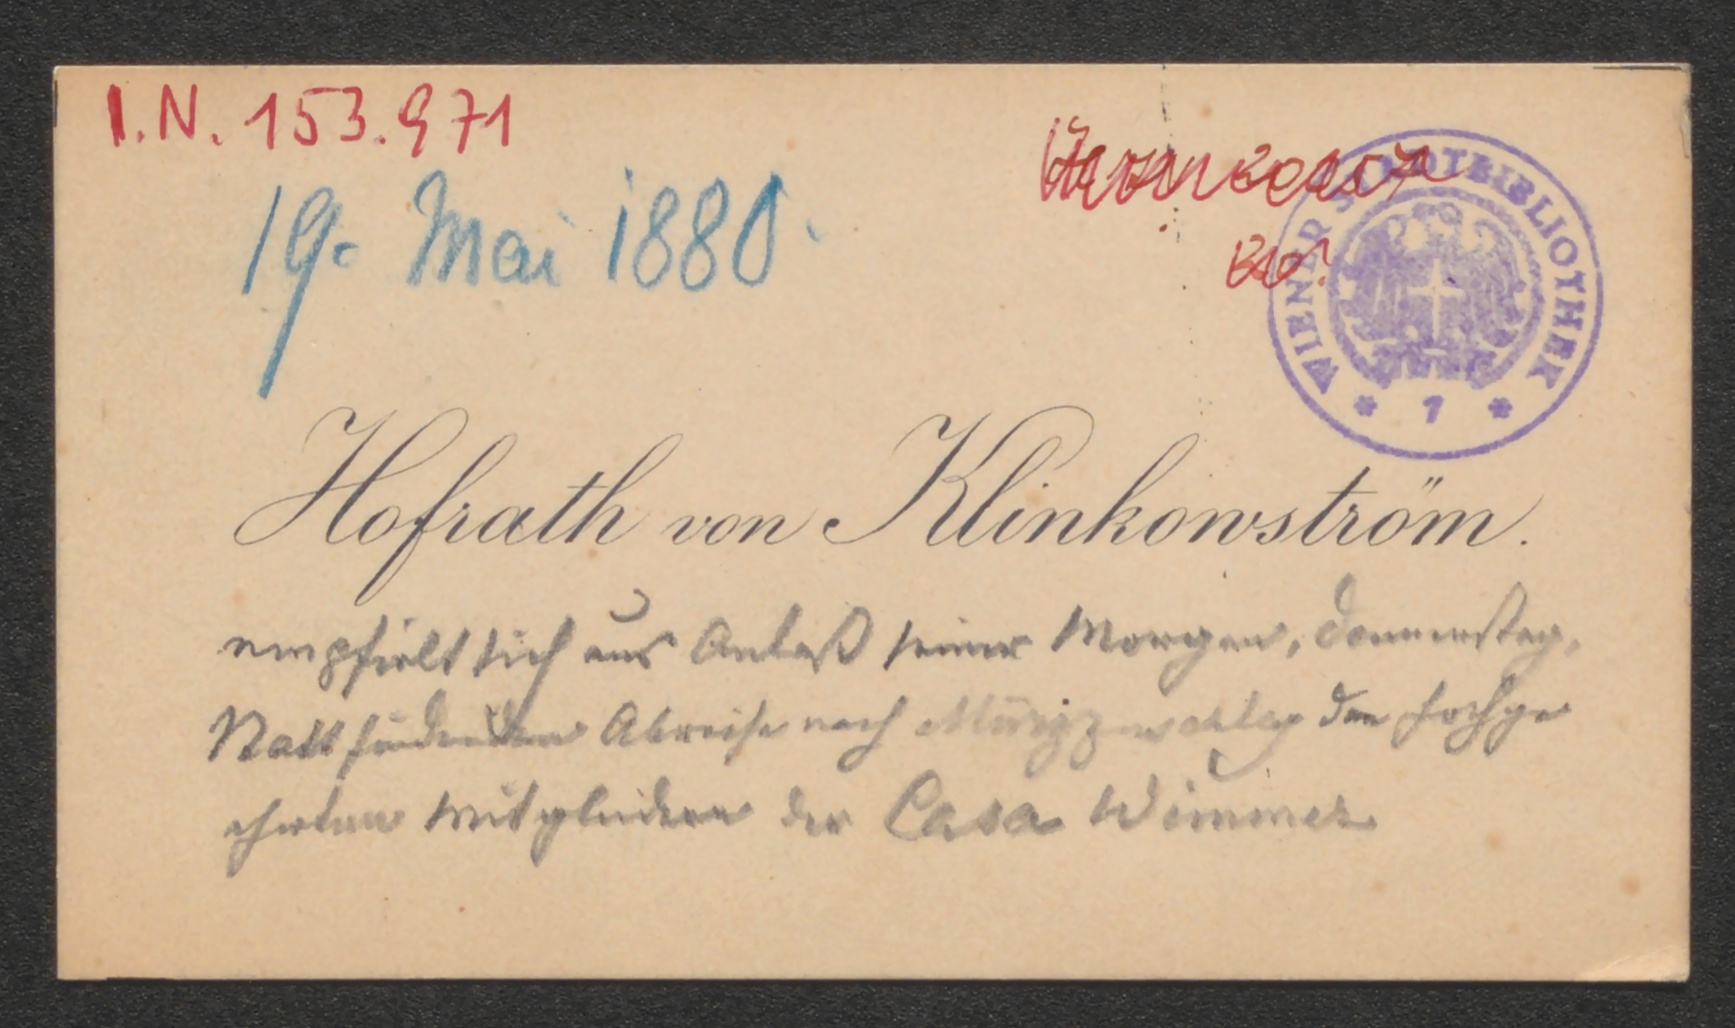 I.N. 153.971
19. Mai 1880.
WIENER STADTBIBLIOTHEK
* 1 *
Hofrath von Klinkowström.
empfielt sich aus Anlaß seiner Morgen, Donnerstag,
Statt findenden Abreise nach Mürzzuschlag den hochge
ehrten Mitgliedern der Casa Wimmer